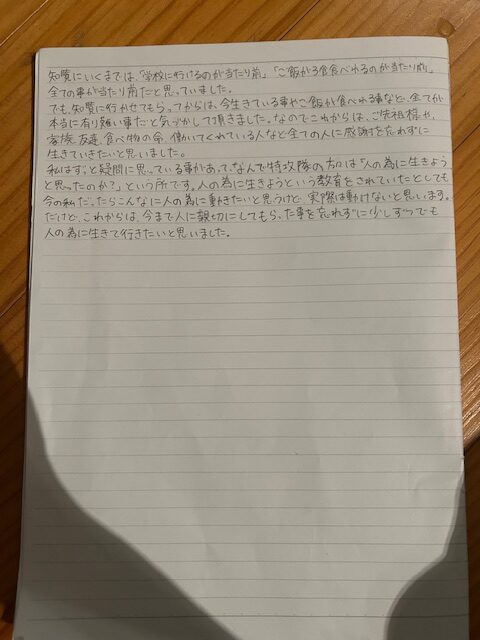 知覧にいくまでは、「学校に行けるのが当たり前」「ご飯が3食食べれるのが当たり前」
全ての事が当たり前だと思っていました。
でも、知覧に行かせてもらってからは、今生きている事やご飯が食べれる事など、全てが
本当に有り難い事だと気づかして頂きました。なのでこれからは、ご先祖様や、
家族、友達、食べ物の命、働いてくれている人など全ての人に感謝を忘れずに
生きていきたいと思いました。
私はずっと疑問に思っている事があって、なんで特攻隊の方々は「人の為に生きよう
と思ったのか?」という所です。人の為に生きようという教育をされていたとしても
今の私だったらこんなに人の為に動きたいと思うけど、実際は動けないと思います。
だけど、これからは、今まで人に親切にしてもらった事を忘れずに少しずつでも
人の為に生きて行きたいと思いました。